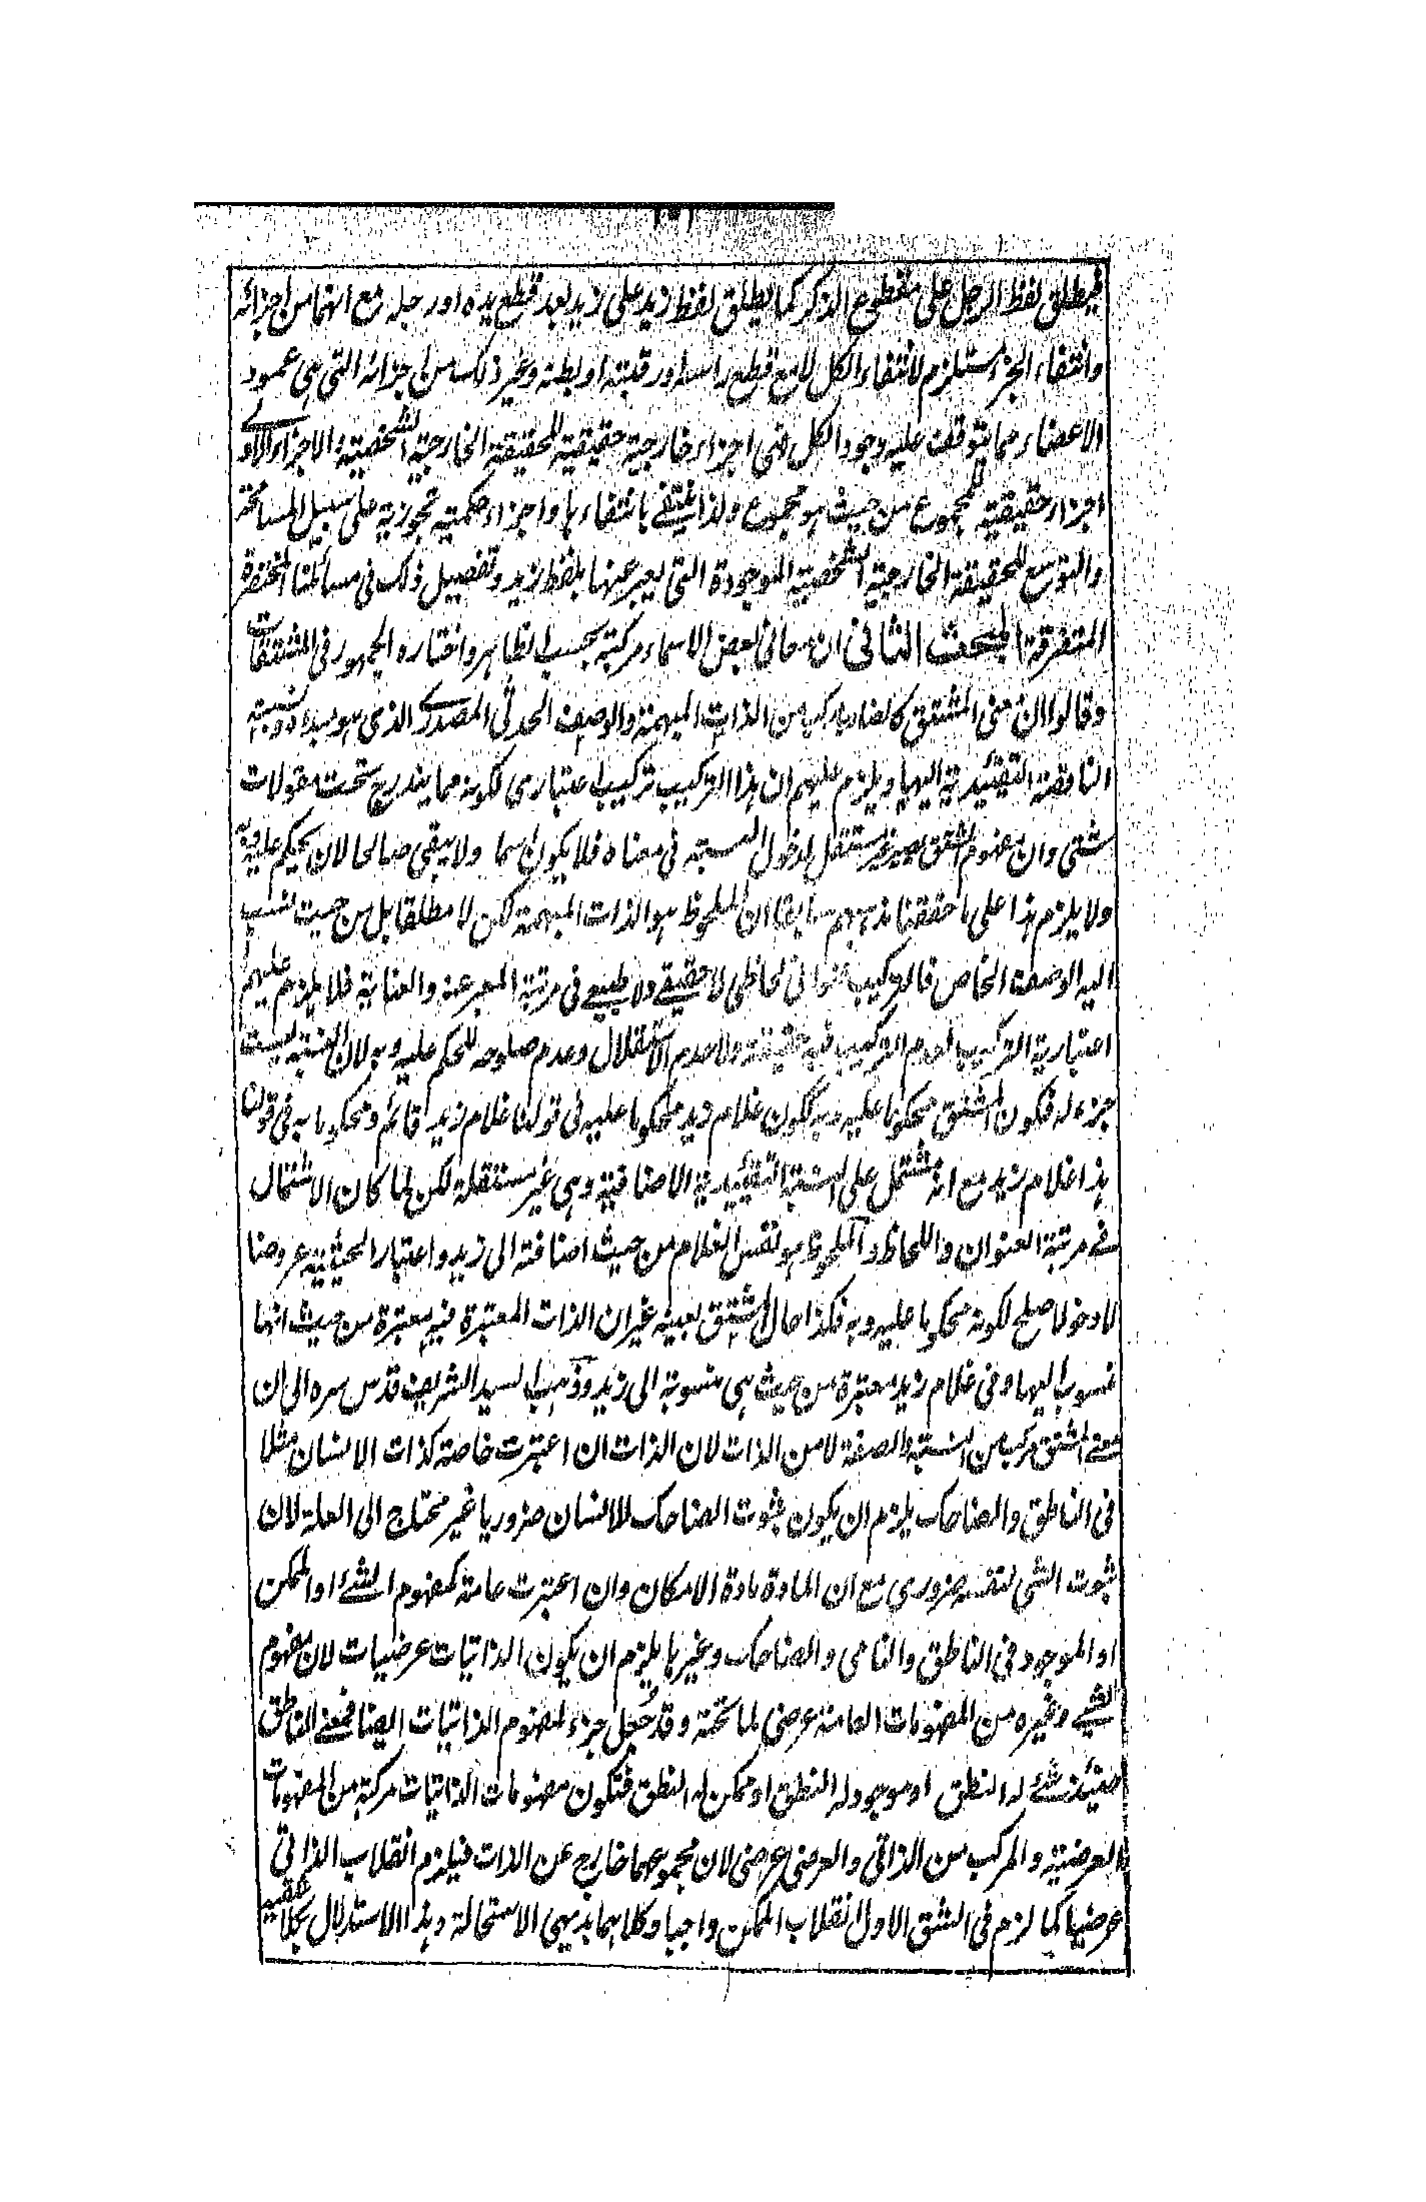 فيطلق لفظ الرجل على مقطوع الذكر كما يطلق لفظ زيد على زيد بعد قطع يده او رجله مع انهما من اجزائه
وانتفاء الجزء مستلزم لانتفاء الكل لا مع قطع راسه او رقبته او بطنه وغير ذلك من اجزائه التى هى عمود
الاعضاء مما يتوقف عليه وجود الكل فهى اجزاء خارجية حقيقية للحقيقة الخارجية الشخصية والاجزاء الاولى
اجزاء حقيقية للمجموع من حيث هو مجموع ولذا ينتفى بانتفاءها واجزاء حكمية تجوزية على سبيل المسامحة
والتوسع للحقيقة الخارجية الشخصية الموجودة التى يعبر عنها بلفظ زيد وتفصيل ذلك فى مسائلنا المختصرة
المتفرقة المبحث الثانى ان معانى بعض الاسماء مركبة بحسب الظاهر واختاره الجمهور فى المشتقات
وقالوا ان معنى المشتق كالضارب مركب من الذات المبهمة والوصف الحدثى المصدرى الذى هو مبداه ونسبته
الناقصة التقييدية اليها ويلزم عليهم ان هذا التركيب تركيب اعتبارى لكونه مما يندرج تحت مقولات
شتى وان مفهوم المشتق يصير غير مستقل لدخول النسبة فى معناه فلا يكون اسما ولا يبقى صالحا لان يحكم عليه وبه
ولا يلزم هذا على ما حققنا مذهبهم سابقا ان الملحوظ هو الذات المبهمة لكن لا مطلقا بل من حيث نسب
اليه الوصف الخاص فالتركيب عنوانى لحاظى لا حقيقى ولا طبيعى فى مرتبة المعبر عنه والعناية فلا يلزم عليهم
اعتبارية التركيب لعدم التركيب فيه حقيقة ولا عدم الاستقلال وعدم صلوحه للحكم عليه وبه لان النسبة ليست
جزء له فكون المشتق محكوما عليه وبه ككون غلام زيد محكوما عليه فى قولنا غلام زيد قائم ومحكوما به فى قولنا
هذا غلام زيد مع انه مشتمل على النسبة التقييدية الاضافية وهى غير مستقلة لكن لما كان الاشتمال
فى مرتبة العنوان واللحاظ والملحوظ هو نفس الغلام من حيث اضافته الى زيد واعتبار الحيثية عروضا
لا دخولا صلح لكونه محكوما عليه وبه فكذا حال المشتق بعينه غير ان الذات المعتبرة فيه معتبرة من حيث انها
منسوب اليها وفى غلام زيد معتبرة من حيث هى منسوبة الى زيد وذهب السيد الشريف قدس سره الى ان
معنى المشتق مركب من النسبة والصفة لا من الذات لان الذات ان اعتبرت خاصة كذات الانسان مثلا
فى الناطق والضاحك يلزم ان يكون ثبوت الضاحك للانسان ضروريا غير محتاج الى العلة لان
ثبوت الشى لنفسه ضرورى مع ان المادة مادة الامكان وان اعتبرت عامة كمفهوم الشئ او الممكن
او الموجود فى الناطق والنامى والضاحك وغيرها يلزم ان يكون الذاتيات عرضيات لان مفهوم
الشئ وغيره من المفهومات العامة عرضى لما تحته وقد جعل جزء لمفهوم الذاتيات ايضا فمعنى الناطق
حينئذ شئ له النطق او موجود له النطق او ممكن له النطق فتكون مفهومات الذاتيات مركبة من المفهومات
العرضية والمركب من الذاتى والعرضى عرضى لان مجموعهما خارج عن الذات فيلزم انقلاب الذاتى
عرضيا كما لزم فى الشق الاول انقلاب الممكن واجبا وكلاهما بديهى الاستحالة وهذا الاستدلال بكلا شقيه